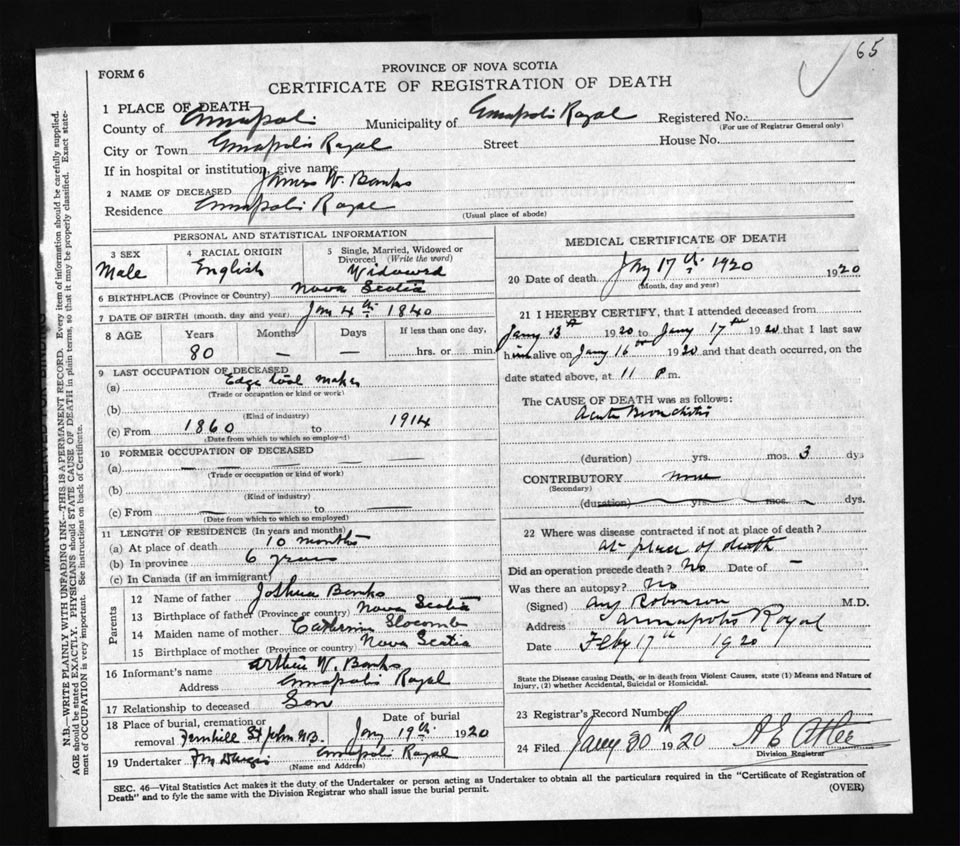 65
FORM 6
PROVINCE OF NOVA SCOTIA
CERTIFICATE OF REGISTRATION OF DEATH
1 PLACE OF DEATH
County of Annapolis Municipality of Annapolis Royal Registered No.
(For use of Registrar General only)
City or Town Annapolis Royal Street House No.
If in hospital or institution, give name
2 NAME OF DECEASED James W. Banks
Residence Annapolis Royal
(Usual place of abode)
PERSONAL AND STATISTICAL INFORMATION
3 SEX Male
4 RACIAL ORIGIN English
5 Single, Married, Widowed or Divorced (Write the word) Widowed
6 BIRTHPLACE (Province or Country) Nova Scotia
7 DATE OF BIRTH (month, day and year) Jan 4th 1840
8 AGE Years Months Days If less than one day,
80 — — hrs. or min.
9 LAST OCCUPATION OF DECEASED
(a) Edge tool maker
(Trade or occupation or kind or work)
(b)
(Kind of industry)
(c) From 1860 to 1914
(Date from which to which so employed)
10 FORMER OCCUPATION OF DECEASED
(a) — — —
(Trade or occupation or kind of work)
(b)
(Kind of industry)
(c) From — to —
(Date from which to which so employed)
11 LENGTH OF RESIDENCE (In years and months)
(a) At place of death 10 months
(b) In province 6 years
(c) In Canada (if an immigrant)
Parents
12 Name of father Joshua Banks
13 Birthplace of father (Province or country) Nova Scotia
14 Maiden name of mother Catherine Slocomb
15 Birthplace of mother (Province or country) Nova Scotia
16 Informant's name Arthur W. Banks
Address Annapolis Royal
17 Relationship to deceased Son
18 Place of burial, cremation or Date of burial
removal Fernhill St John N.B. Jany 19th 1920
19 Undertaker Annapolis Royal
(Name and Address)
MEDICAL CERTIFICATE OF DEATH
20 Date of death Jany 17th 1920 1920
(Month, day and year)
21 I HEREBY CERTIFY, that I attended deceased from
Jany 13th 1920 to Jany 17th 1920 that I last saw
him alive on Jany 16th 1920 and that death occurred, on the
date stated above, at 11 P m.
The CAUSE OF DEATH was as follows:
Acute Bronchitis
(duration) yrs. mos. 3 dys
CONTRIBUTORY none
(Secondary)
(duration) yrs. mos. dys.
22 Where disease contracted if not at place of death?
at place of death
Did an operation precede death? No Date of —
Was there an autopsy? No
(Signed) Robinson M.D.
Address Annapolis Royal
Date Feby 17th 1920
State the Disease causing Death, or in death from Violent Causes, state (1) Means and Nature of
Injury, (2) whether Accidental, Suicidal or Homicidal.
23 Registrar's Record Number
24 Filed Jany 30th 1920 A E Atlee
Division Registrar
SEC. 46—Vital Statistics Act makes it the duty of the Undertaker or person acting as Undertaker to obtain all the particulars required in the "Certificate of Registration of
Death" and to fyle the same with the Division Registrar who shall issue the burial permit.
(OVER)
N.B.—WRITE PLAINLY WITH UNFADING INK—THIS IS A PERMANENT RECORD. Every item of information should be carefully supplied.
AGE should be stated EXACTLY. PHYSICIANS should STATE CAUSE OF DEATH in plain terms, so that it may be properly classified. Exact state-
ment of OCCUPATION is very important. See instructions on back of Certificate.